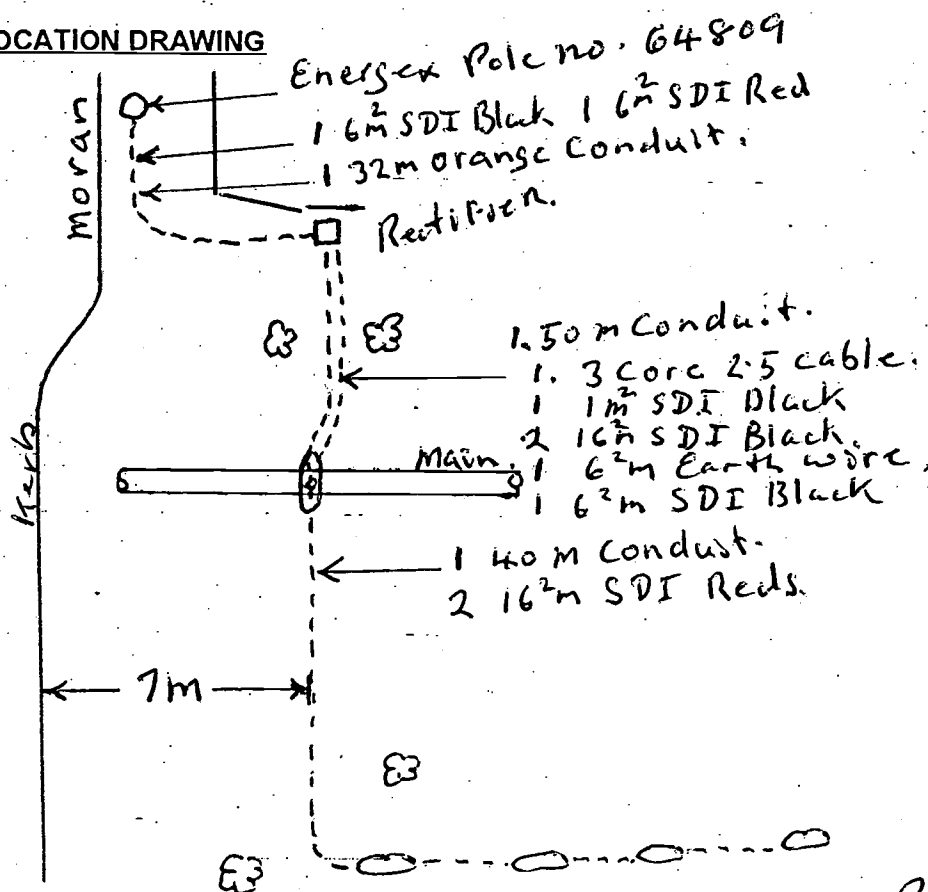 OCATION DRAWING
Energex Pole no. 64809
1 6m² SDI Black 1 6m² SDI Red
1 32m orange Conduit.
Rectifier.
Moran
1. 50 m Conduit.
1. 3 Core 2.5 cable.
1 1m² SDI Black
2 16m² SDI Black.
1 6²m Earth wire.
1 6²m SDI Black
Main.
Kerb
1 40 m Conduit.
2 16²m SDI Reds.
7m